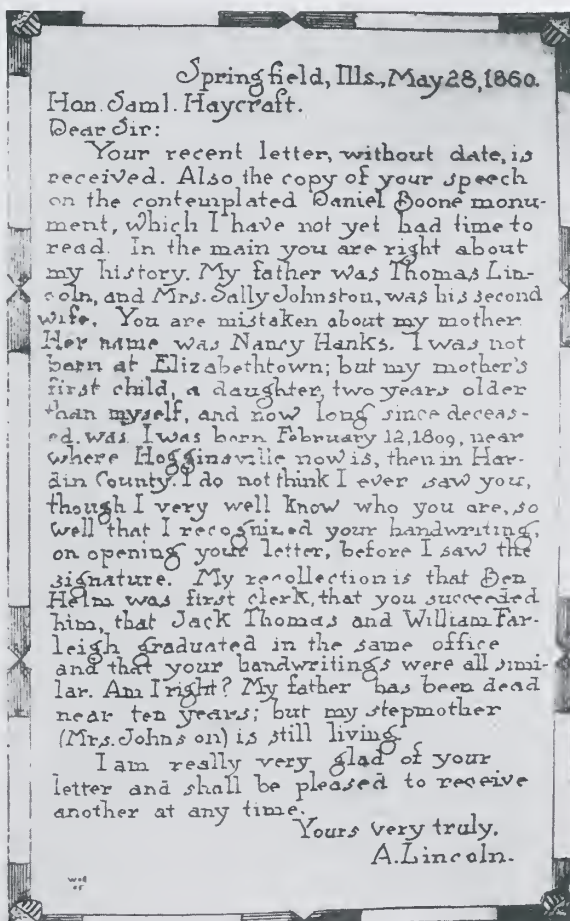 Springfield, Ills., May 28, 1860.
Hon. Saml. Haycraft.
Dear Sir:
Your recent letter, without date, is
received. Also the copy of your speech
on the contemplated Daniel Boone monu-
ment, which I have not yet had time to
read. In the main you are right about
my history. My father was Thomas Lin-
coln, and Mrs. Sally Johnston, was his second
wife. You are mistaken about my mother.
Her name was Nancy Hanks. I was not
born at Elizabethtown; but my mother's
first child, a daughter, two years older
than myself, and now long since deceas-
ed, was. I was born February 12, 1809, near
where Hogginsville now is, then in Har-
din County. I do not think I ever saw you,
though I very well know who you are, so
well that I recognized your handwriting,
on opening your letter, before I saw the
signature. My recollection is that Ben
Helm was first clerk, that you succeeded
him, that Jack Thomas and William Far-
leigh graduated in the same office
and that your handwritings were all simi-
lar. Am I right? My father has been dead
near ten years; but my stepmother
(Mrs. Johnson) is still living.
I am really very glad of your
letter and shall be pleased to receive
another at any time.
Yours very truly,
A. Lincoln.